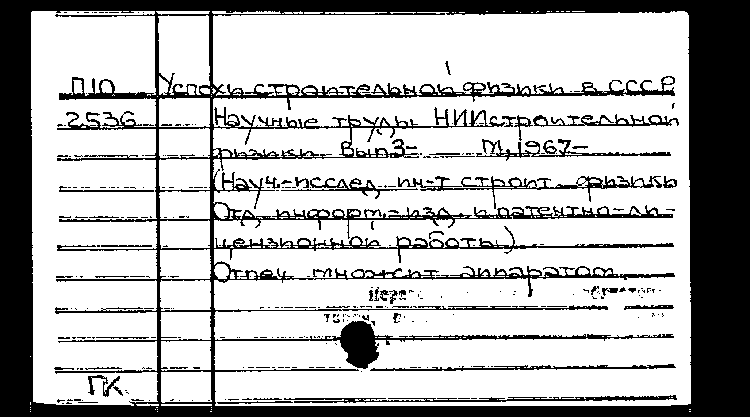 П10 Успехи строительной физики в СССР
2536 Научные труды НИИстроительной
физики Вып3- М, 1967-
(Науч.-исслед. ин-т строит. физики
Отд. информ.-изд. и патентно-ли-
цензионной работы.)
Отпеч. множит. аппаратом
ПК